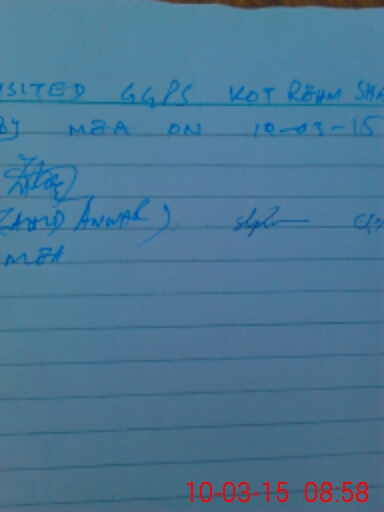 ISITED GGPS KOT REHM SHA
By MEA ON 10-03-15
(ZAHID ANWAR)
MEA
10-03-15 08:58